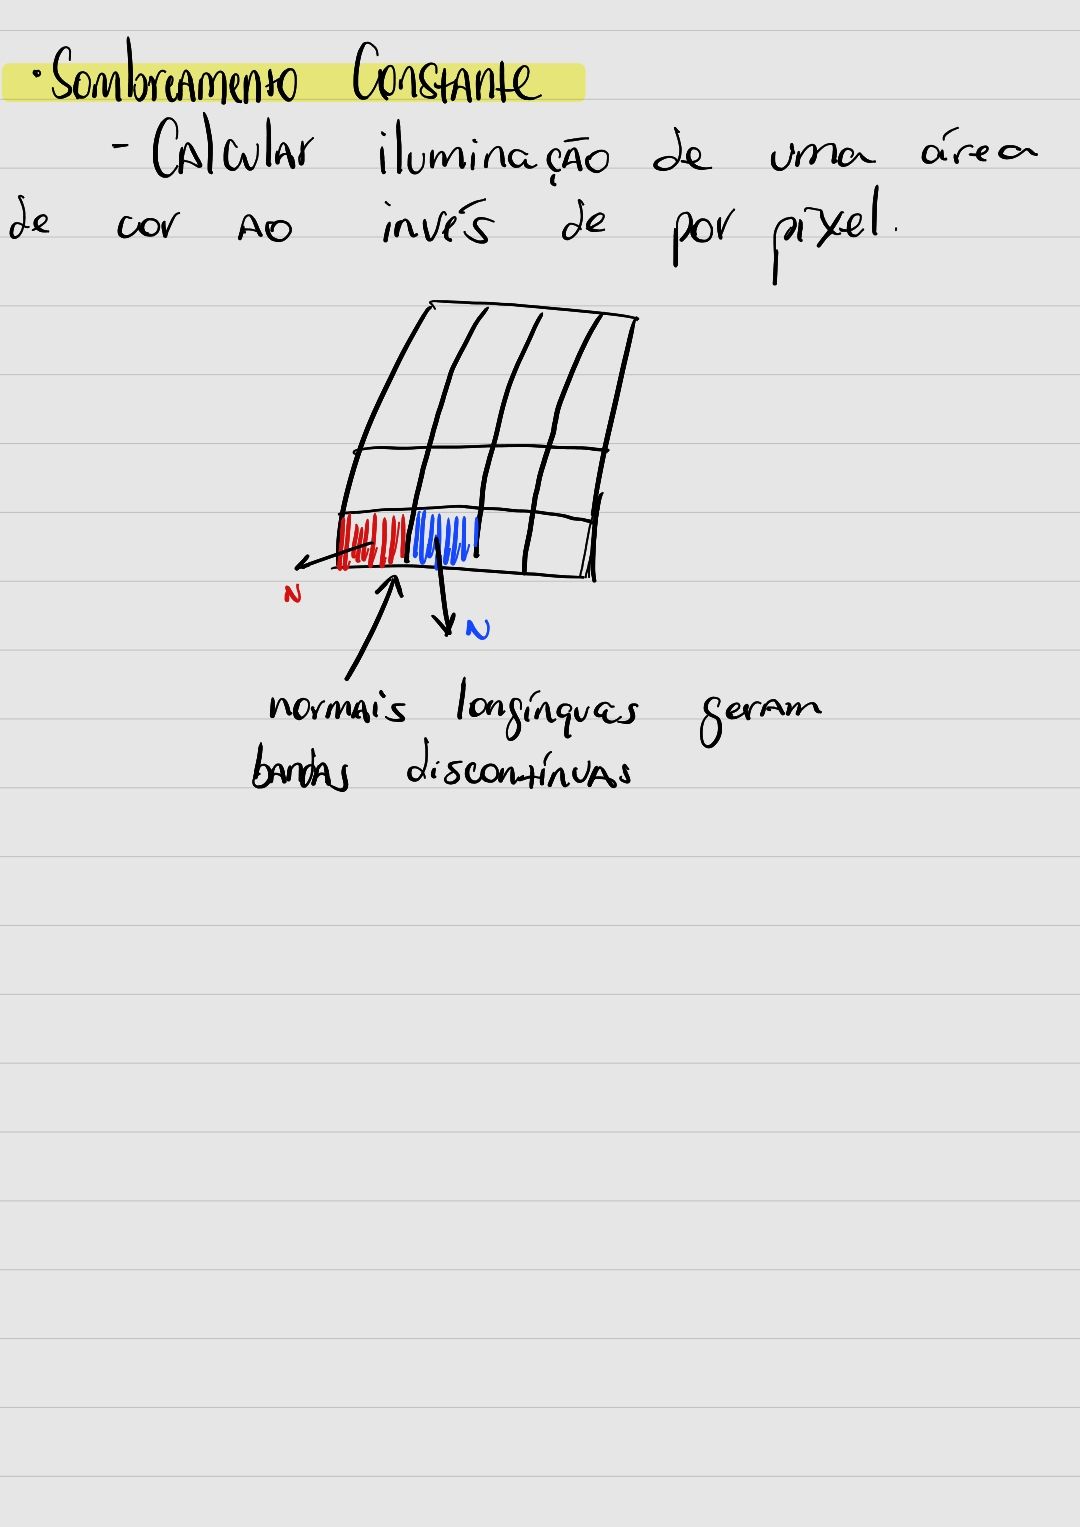 · Sombreamento Constante
- Calcular iluminação de uma área
de cor ao invés de por pixel.
N
N
normais longínquas geram
bandas discontínuas